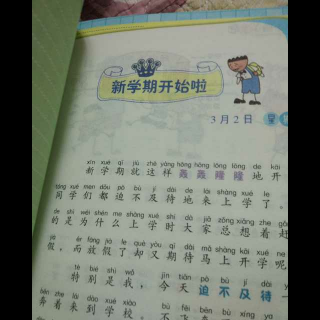 新学期开始啦
3月2日
xīn xué qī jiù zhè yàng hōng hōng lóng lóng de kāi
新学期就这样轰轰隆隆地开
tóng xué men dōu pò bù jí dài de lái shàng xué le
同学们都迫不及待地来上学了。
de shì wèi shén me shàng xué shí dà jiā zǒng xiǎng zhe
的是为什么上学时大家总想着赶
jià ér fàng jià le què yòu qī dài mǎ shàng kāi xué ne
假，而放假了却又期待马上开学呢
tè bié shì wǒ jīn tiān pò bù jí dài
特别是我，今天迫不及待
bēn zhe lái dào xué xiào
奔着来到学校。